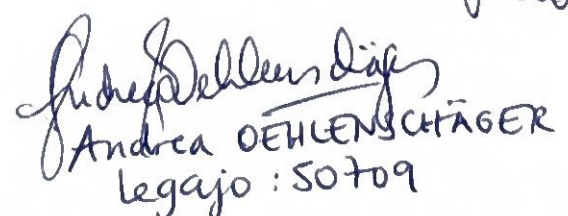 Andrea Oehlenschäger
Andrea OEHLENSCHÄGER
Legajo : 50709